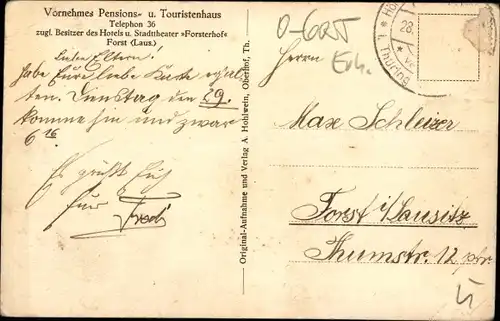 Vornehmes Pensions- u. Touristenhaus
Telephon 36
zugl. Besitzer des Hotels u. Stadttheater »Forsterhof«
Forst (Laus.)
Liebe Eltern!
habe Eure liebe Karte erhal
ten. Dienstag den 29.
komme ich und zwar
6 16
Es grüßt Euch
Euer Fredi
Original-Aufnahme und Verlag A. Hohlwein, Oberhof, Th.
28.
i. Thüring
Herrn
Max Schleizer
Forst i/Lausitz
Thumstr. 12 ptr.